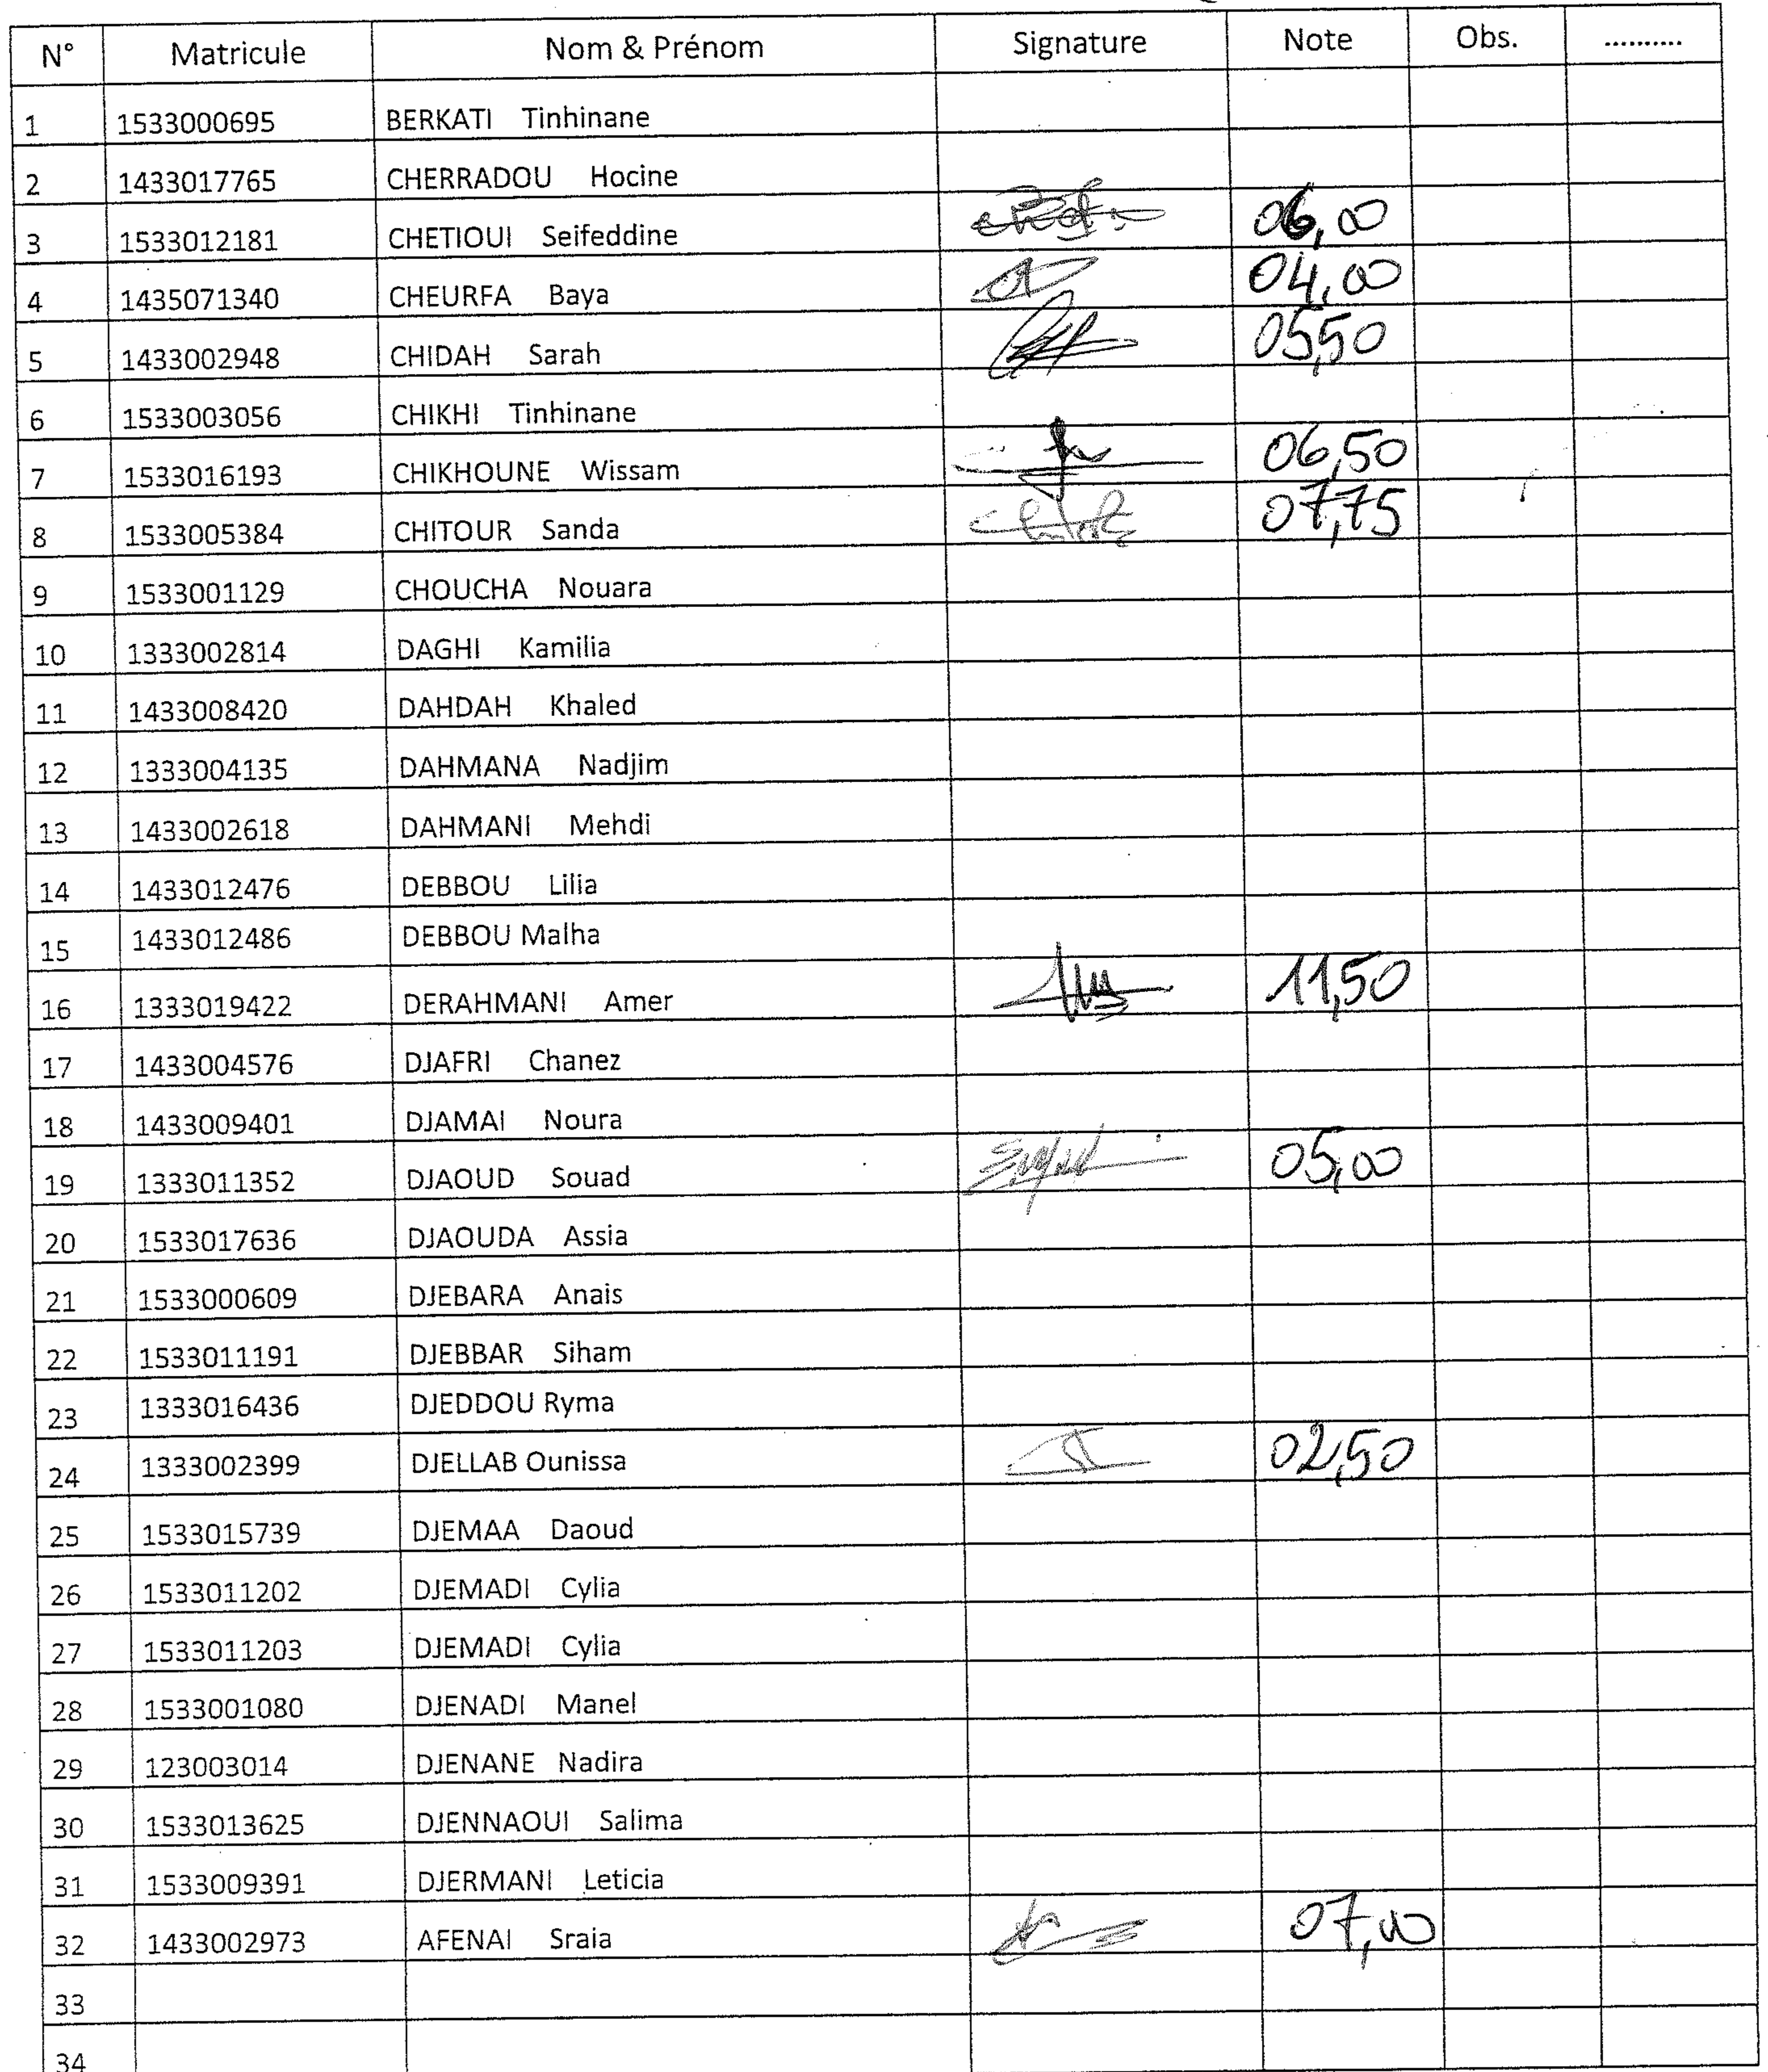 N° Matricule Nom & Prénom Signature Note Obs. ..........
1 1533000695 BERKATI Tinhinane
2 1433017765 CHERRADOU Hocine
3 1533012181 CHETIOUI Seifeddine 06,00
4 1435071340 CHEURFA Baya 04,00
5 1433002948 CHIDAH Sarah 05,50
6 1533003056 CHIKHI Tinhinane
7 1533016193 CHIKHOUNE Wissam 06,50
8 1533005384 CHITOUR Sanda 07,75
9 1533001129 CHOUCHA Nouara
10 1333002814 DAGHI Kamilia
11 1433008420 DAHDAH Khaled
12 1333004135 DAHMANA Nadjim
13 1433002618 DAHMANI Mehdi
14 1433012476 DEBBOU Lilia
15 1433012486 DEBBOU Malha
16 1333019422 DERAHMANI Amer 11,50
17 1433004576 DJAFRI Chanez
18 1433009401 DJAMAI Noura
19 1333011352 DJAOUD Souad 05,00
20 1533017636 DJAOUDA Assia
21 1533000609 DJEBARA Anais
22 1533011191 DJEBBAR Siham
23 1333016436 DJEDDOU Ryma
24 1333002399 DJELLAB Ounissa 02,50
25 1533015739 DJEMAA Daoud
26 1533011202 DJEMADI Cylia
27 1533011203 DJEMADI Cylia
28 1533001080 DJENADI Manel
29 123003014 DJENANE Nadira
30 1533013625 DJENNAOUI Salima
31 1533009391 DJERMANI Leticia
32 1433002973 AFENAI Sraia 07,00
33
34